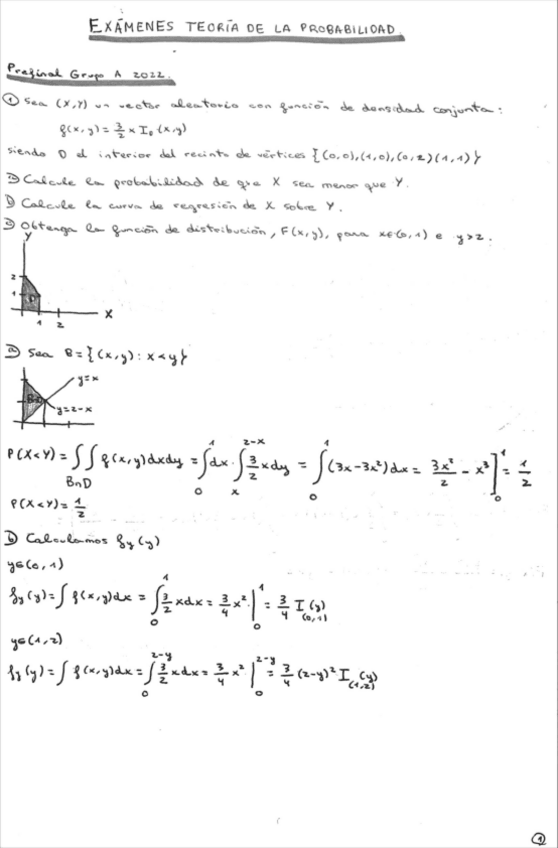 EXÁMENES TEORÍA DE LA PROBABILIDAD
Prefinal Grupo A 2022.
① Sea (X,Y) un vector aleatorio con función de densidad conjunta:
f(x,y) = 3/2 x I_D (x,y)
siendo D el interior del recinto de vértices {(0,0),(1,0),(0,2)(1,1)}
a) Calcule la probabilidad de que X sea menor que Y.
b) Calcule la curva de regresión de X sobre Y.
c) Obtenga la función de distribución, F(x,y), para x∈(0,1) e y>2.
Y
2
1
D
1 2
X
a) Sea B = {(x,y): x<y}
y=x
B∩D
y=2-x
P(X<Y) = ∫∫_{B∩D} f(x,y)dxdy = ∫_0^1 dx · ∫_x^{2-x} 3/2 x dy = ∫_0^1 (3x-3x²)dx = 3x²/2 - x³]_0^1 = 1/2
P(X<Y) = 1/2
b) Calculamos f_y(y)
y∈(0,1)
f_y(y) = ∫ f(x,y)dx = ∫_0^1 3/2 x dx = 3/4 x² |_0^1 = 3/4 I_(0,1) (y)
y∈(1,2)
f_y(y) = ∫ f(x,y)dx = ∫_0^{2-y} 3/2 x dx = 3/4 x² |_0^{2-y} = 3/4 (2-y)² I_(1,2) (y)
①